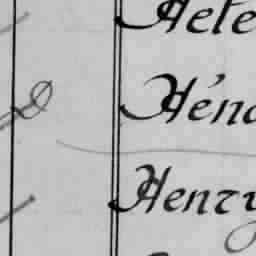 Hele
Héna
Henry